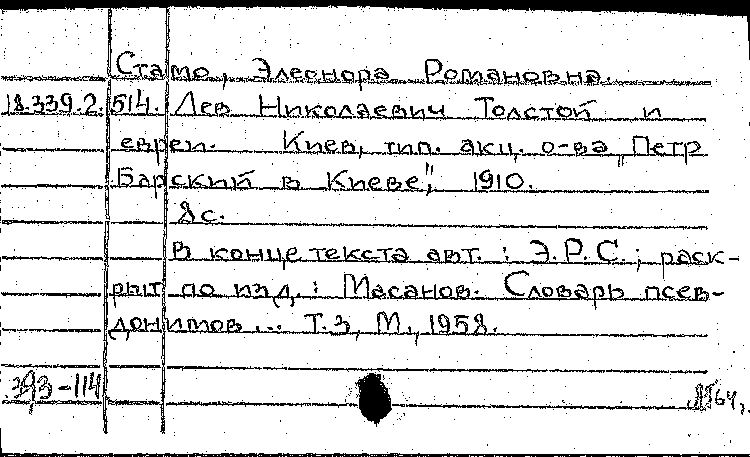 Стамо, Элеонора Романовна.
18.339.2.514. Лев Николаевич Толстой и
евреи. Киев, тип. акц. о-ва „Петр
Барский в Киеве", 1910.
8 с.
В конце текста авт.: Э.Р.С.; раск-
рыт по изд.: Масанов. Словарь псев-
донимов... Т.3, М., 1958.
393-114